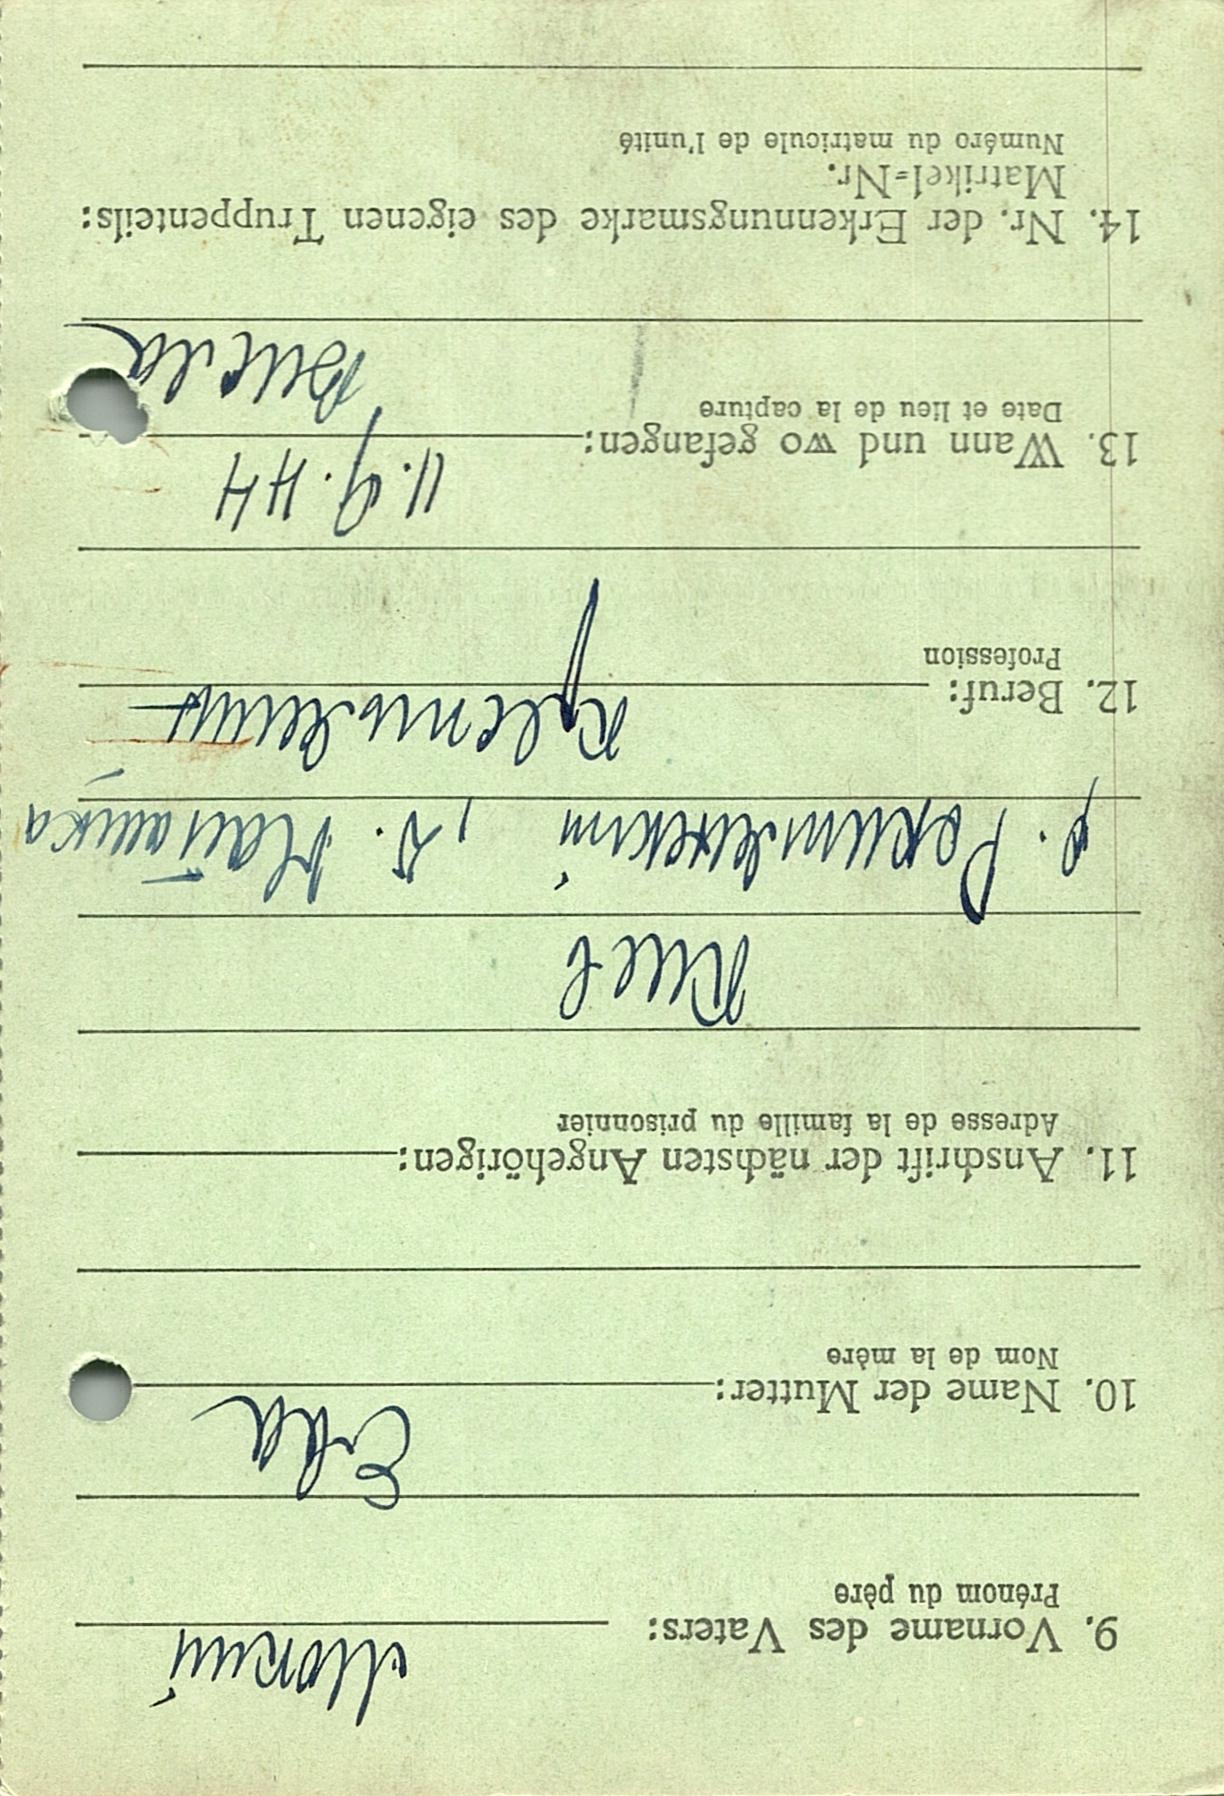 9. Vorname des Vaters:
Prénom du père
10. Name der Mutter:
Nom de la mère
Ева
11. Anschrift der nächsten Angehörigen:
Adresse de la famille du prisonnier
Киев
р. Ракитянский, с.
12. Beruf:
Profession
13. Wann und wo gefangen:
11.9.44
Date et lieu de la capture
Висла
14. Nr. der Erkennungsmarke des eigenen Truppenteils:
Matrikel-Nr.
Numéro du matricule de l'unité